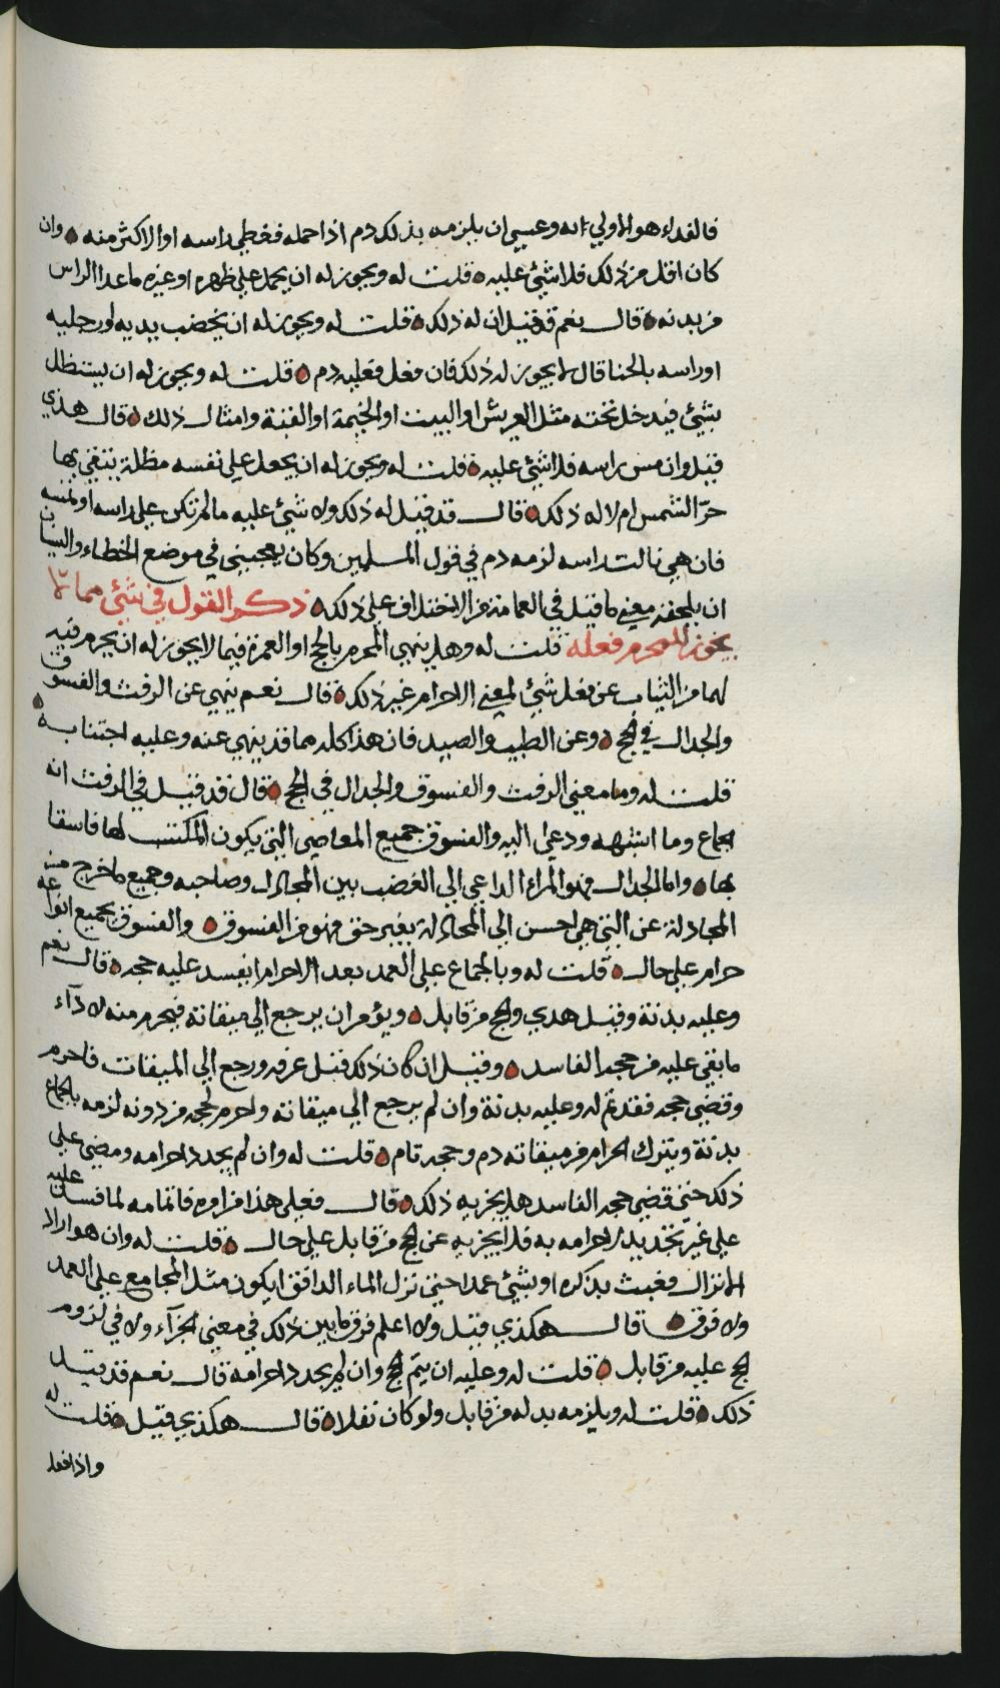 فالفداء هو الاولي به وعسي ان يلزمه بذلك دم اذا حمله فغطي راسه او الاكثر منه ه وان
كان اقل من ذلك فلا شيء عليه ه قلت له ويجوز له ان يحمل علي ظهره او غيره ما عدا الراس
من بدنه ه قال نعم قد قيل ان له ذلك ه قلت له ويجوز له ان يخضب يديه او رجليه
او راسه بالحنا قال لا يجوز له ذلك فان فعل فعليه دم ه قلت له ويجوز له ان يستظل
بشيء فيدخل تحته مثل العريش او البيت او الخيمة او القبة وامثال ذلك ه قال هكذي
قيل وان مس راسه فلا شيء عليه ه قلت له ويجوز له ان يجعل علي نفسه مظلة يتقي بها
حرّ الشمس ام لا له ذلك ه قال قد قيل له ذلك ولا شيء عليه ما لم تكن علي راسه او تمسه
فان هي نالت راسه لزمه دم في قول المسلمين وكان يعجبني في موضع الخطاء والنسيان
ان يلحقه معني ما قيل في العمامة من الاختلاف علي ذلك ه ذكر القول في شيء مما لا
يجوز للمحرم فعله قلت له وهل ينهي المحرم بالحج او العمرة فيما لا يجوز له ان يحرم فيه
لهما من الثياب عن فعل شيء لمعني الاحرام غير ذلك ه قال نعم ينهي عن الرفث والفسوق
والجدال في الحج ه وعن الطيب والصيد فان هذا كله مما قد ينهي عنه وعليه اجتنابه ه
قلت له وما معني الرفث والفسوق والجدال في الحج ه قال قد قيل في الرفث انه
الجماع وما اشبهه ودعي اليه والفسوق جميع المعاصي التي يكون المكتسب لها فاسقا
بها ه واما الجدال فهو المراء الداعي الي الغضب بين المجادل وصاحبه وجميع ما خرج من
المجادلة عن التي هي احسن الي المجادلة بغير حق فهو من الفسوق ه والفسوق بجميع انواعه
حرام علي حال ه قلت له وبالجماع علي العمد بعد الاحرام ايفسد عليه حجه ه قال نعم
وعليه بدنة وقيل هدي والحج من قابل ه ويؤمر ان يرجع الي ميقاته فيحرم منه لاداء
ما بقي عليه من حجه الفاسد ه وقيل ان كان ذلك قبل عرفه ورجع الي الميقات فاحرم
وقضي حجه فقد تم له وعليه بدنة وان لم يرجع الي ميقاته واحرم لحجه من دونه لزمه بالجماع
بدنة وبترك احرام من ميقاته دم وحجه تام ه قلت له وان لم يجدد احرامه ومضي علي
ذلك حتي قضي حجه الفاسد هل يجزيه ذلك ه قال فعلي هذا من امره فاتمامه لما فسد عليه
علي غير تجديد لاحرامه به فلا يجزيه عن الحج من قابل علي حال ه قلت له وان هو اراد
الانزال فعبث بذكره او بشيء عمدا حتي نزل الماء الدافق ايكون مثل المجامع علي العمد
ولا فرق ه قال هكذي قيل ولا اعلم فرق ما بين ذلك في معني الجزآء ولا في لزوم
الحج عليه من قابل ه قلت له وعليه ان يتم الحج وان لم يجدد احرامه قال نعم قد قيل
ذلك ه قلت له ويلزمه بدله من قابل ولو كان نفلا ه قال هكذي قيل ه قلت له
واذا فعل